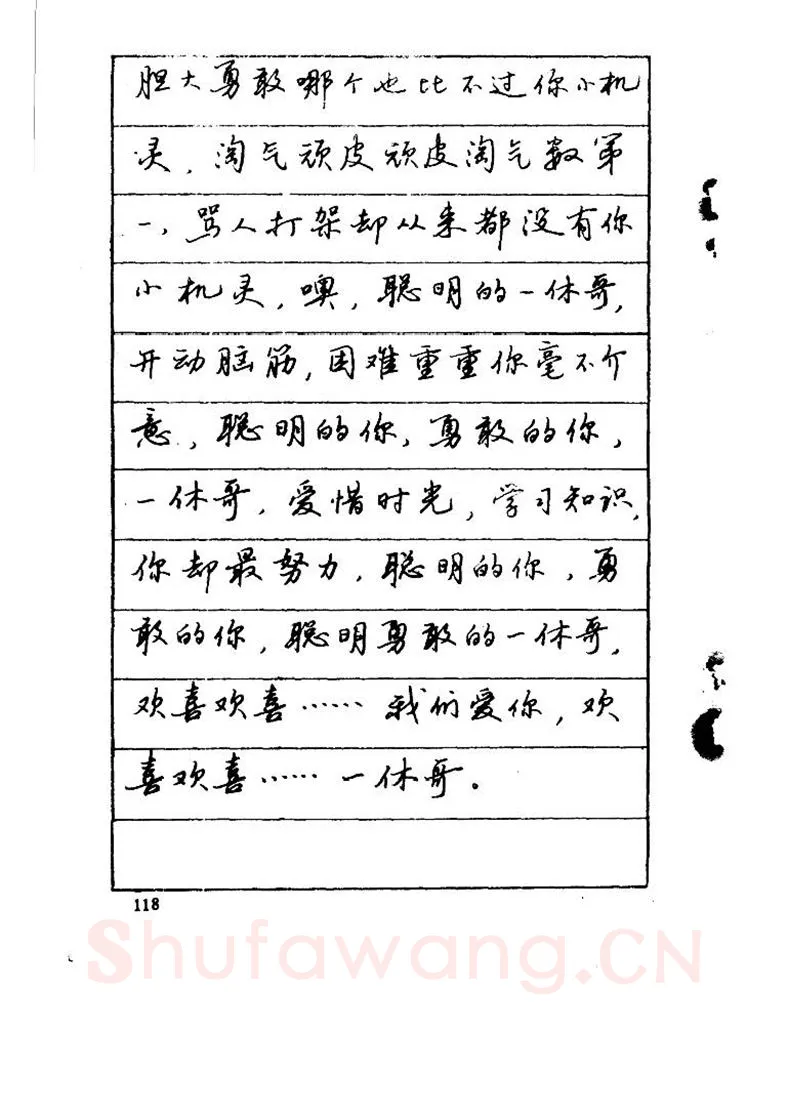 胆大勇敢哪个也比不过你小机
灵,淘气顽皮顽皮淘气数第
一,骂人打架却从来都没有你
小机灵,噢,聪明的一休哥,
开动脑筋,困难重重你毫不介
意,聪明的你,勇敢的你,
一休哥,爱惜时光,学习知识,
你却最努力,聪明的你,勇
敢的你,聪明勇敢的一休哥,
欢喜欢喜……我们爱你,欢
喜欢喜……一休哥.
118
Shufawang.CN